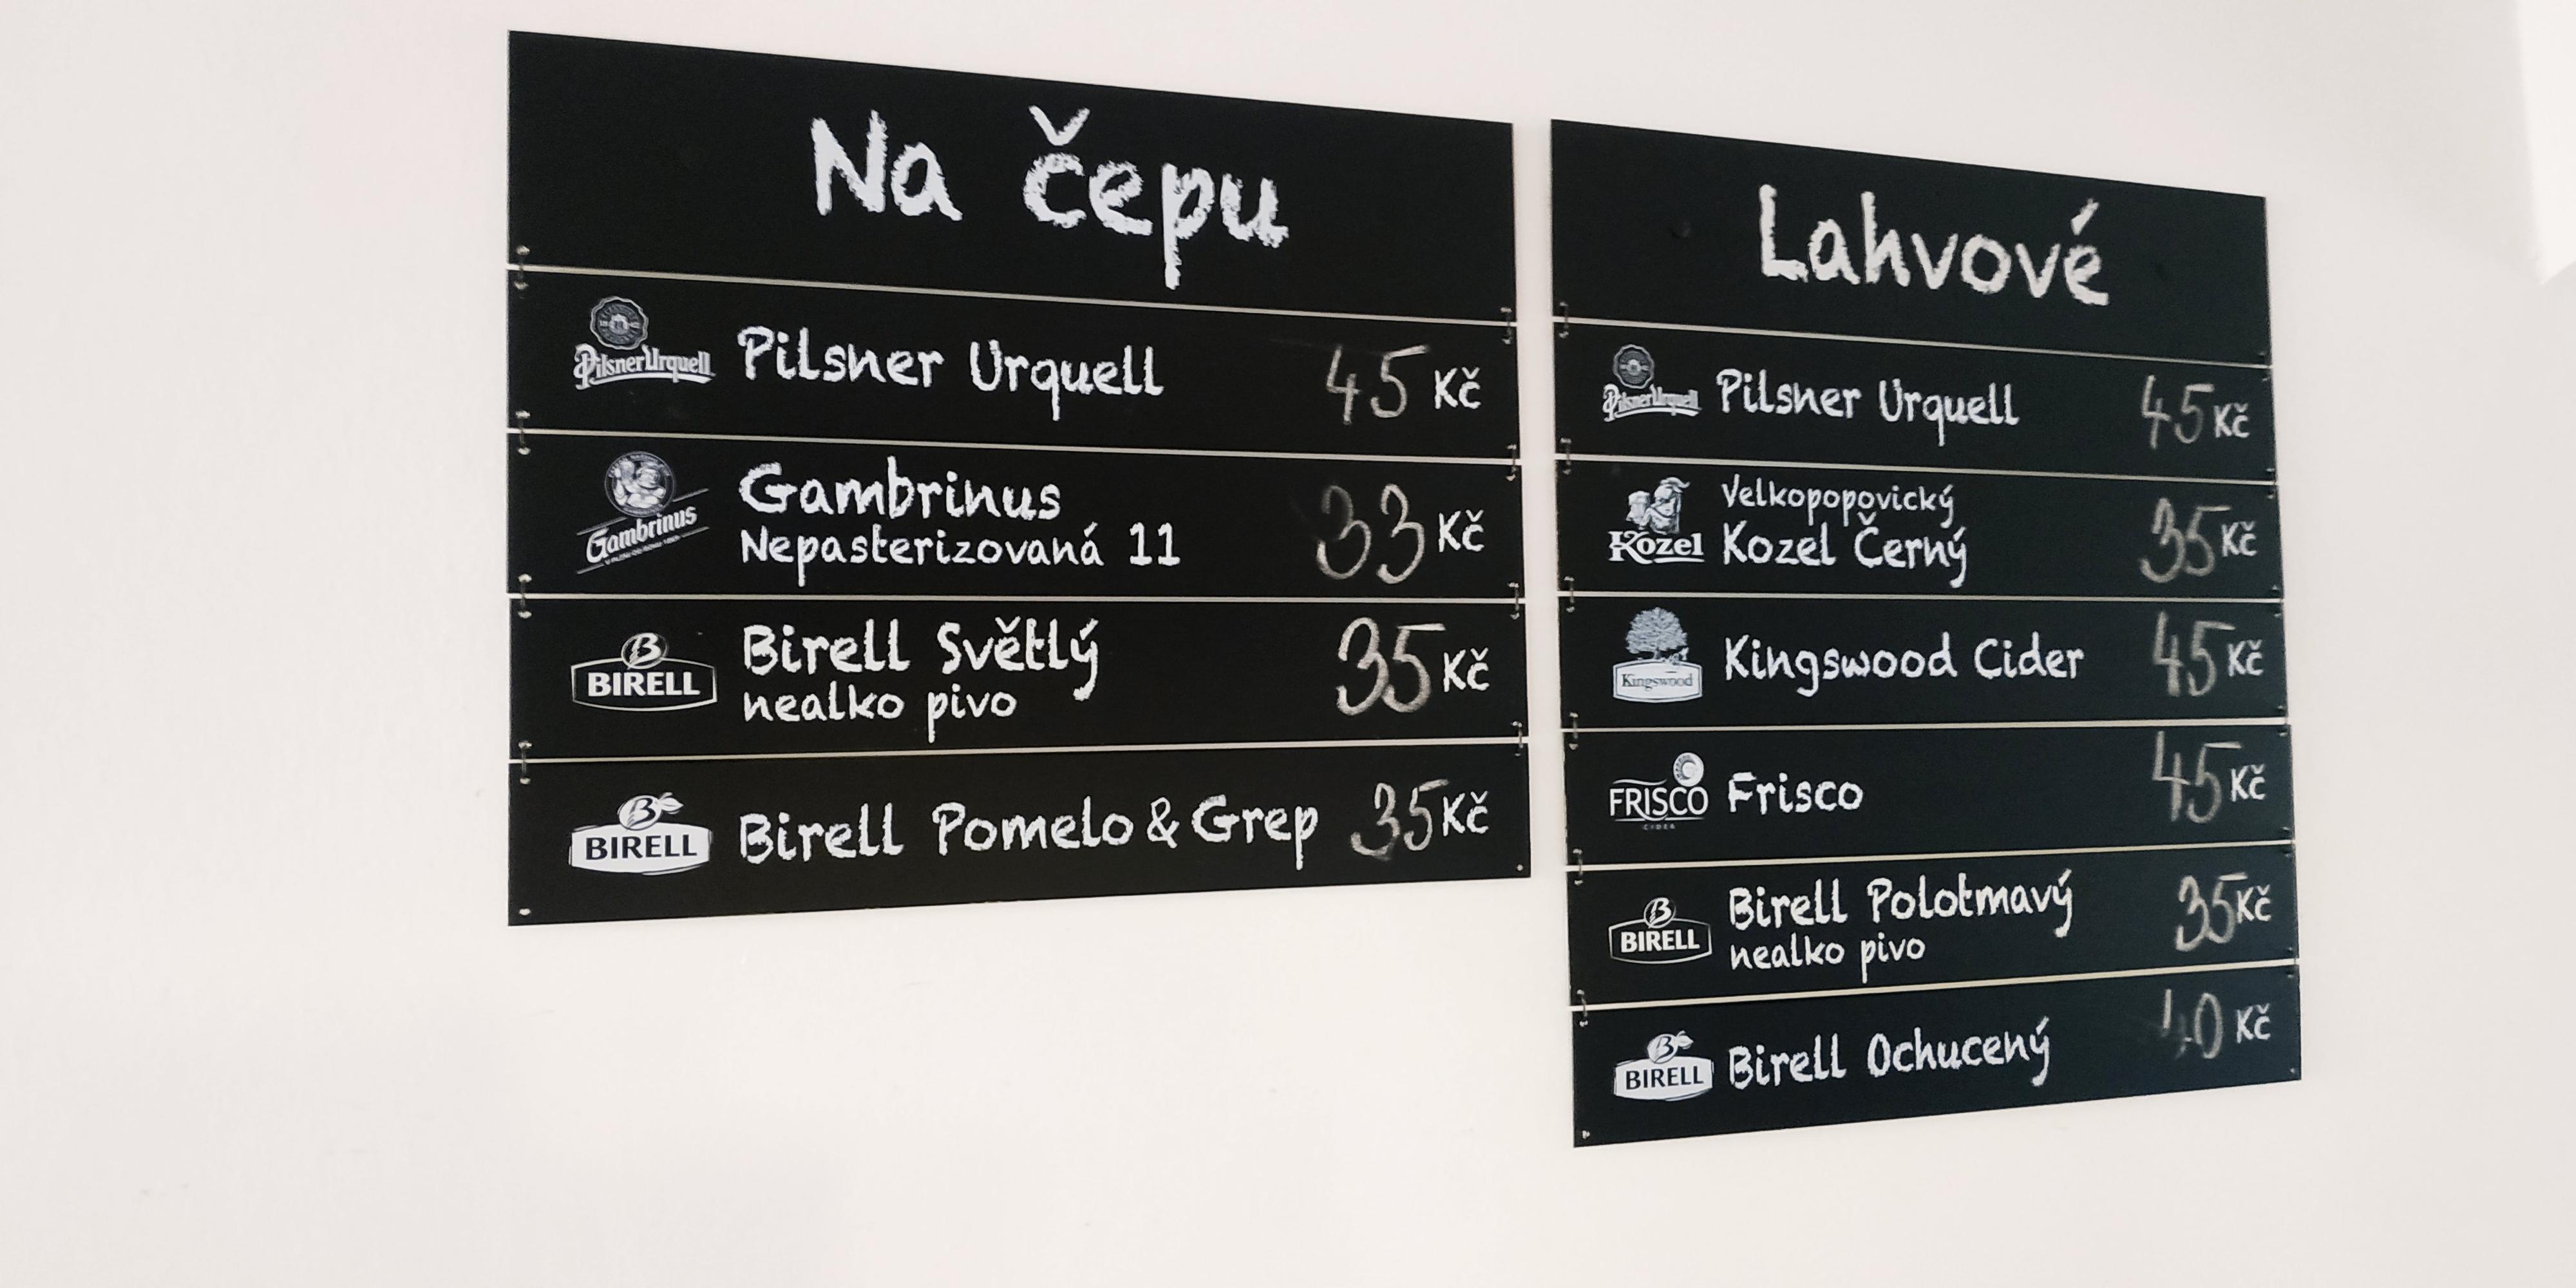 Na čepu
Pilsner Urquell Pilsner Urquell 45 Kč
Gambrinus Gambrinus
Nepasterizovaná 11 33 Kč
B BIRELL Birell Světlý
nealko pivo 35 Kč
B BIRELL Birell Pomelo & Grep 35 Kč
Lahvové
Pilsner Urquell Pilsner Urquell 45 Kč
Velkopopovický
Kozel Kozel Černý 35 Kč
Kingswood Kingswood Cider 45 Kč
FRISCO CIDER Frisco 45 Kč
B BIRELL Birell Polotmavý
nealko pivo 35 Kč
B BIRELL Birell Ochucený 40 Kč